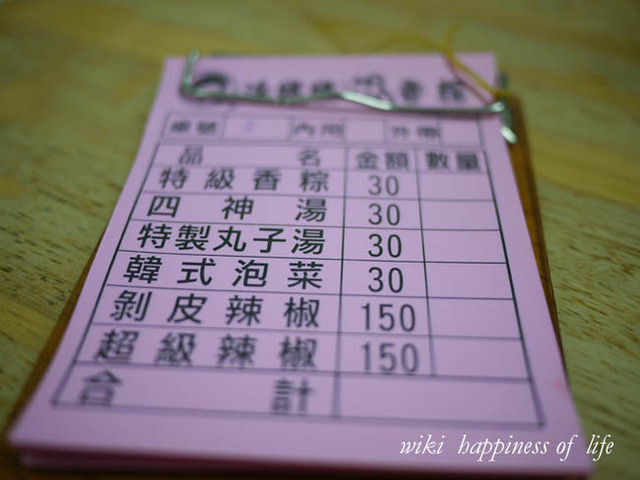 桌號 內用 外帶
品名 金額 數量
特級香粽 30
四神湯 30
特製丸子湯 30
韓式泡菜 30
剝皮辣椒 150
超級辣椒 150
合計
wiki happiness of life